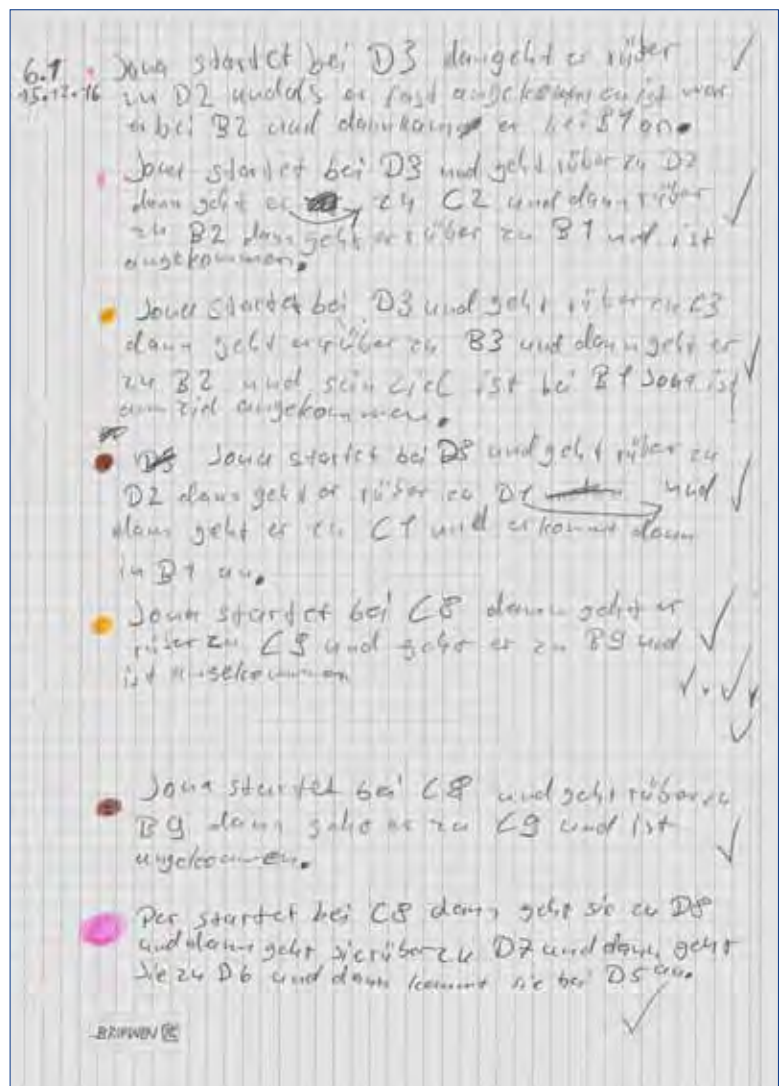 6.1 Jona startet bei D3 dan geht er rüber
15.12.16 zu D2 und als er fast angekommen ist war
er bei B2 und dann kam er bei B1 an.
Jona startet bei D3 und geht rüber zu D2
dann geht er zu C2 und dann rüber
zu B2 dann geht er rüber zu B1 und ist
angekommen.
Jona startet bei D3 und geht rüber zu C3
dann geht er rüber zu B3 und dann geht er
zu B2 und sein Ziel ist bei B1 Jona ist
am Ziel angekommen.
Jona startet bei D8 und geht rüber zu
D2 dann geht er rüber zu D1 und
dann geht er zu C1 und er kommt dann
in B1 an.
Jona startet bei C8 dann geht er
rüber zu C9 und geht er zu B9 und
ist angekommen
Jona startet bei C8 und geht rüber zu
B9 dann geht er zu C9 und ist
angekommen.
Per startet bei C8 dann geht sie zu D8
und dann geht sie rüber zu D7 und dann geht
sie zu D6 und dann kommt sie bei D5 an.